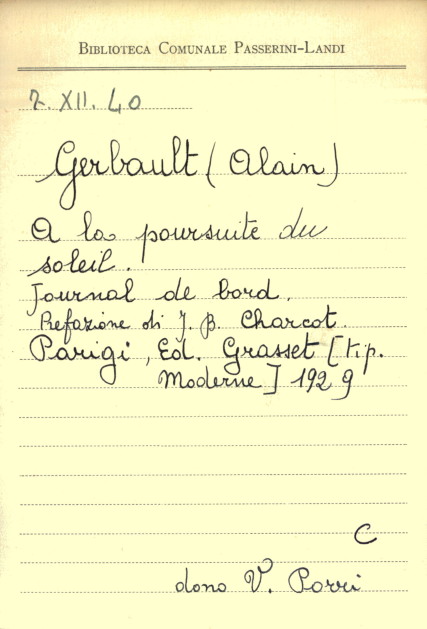 BIBLIOTECA COMUNALE PASSERINI-LANDI
7. XII. 40
Gerbault (Alain)
A la poursuite du
soleil.
Journal de bord.
Prefazione di J. B. Charcot.
Parigi, Ed. Grasset [tip.
Moderne] 1929
C
dono V. Porri